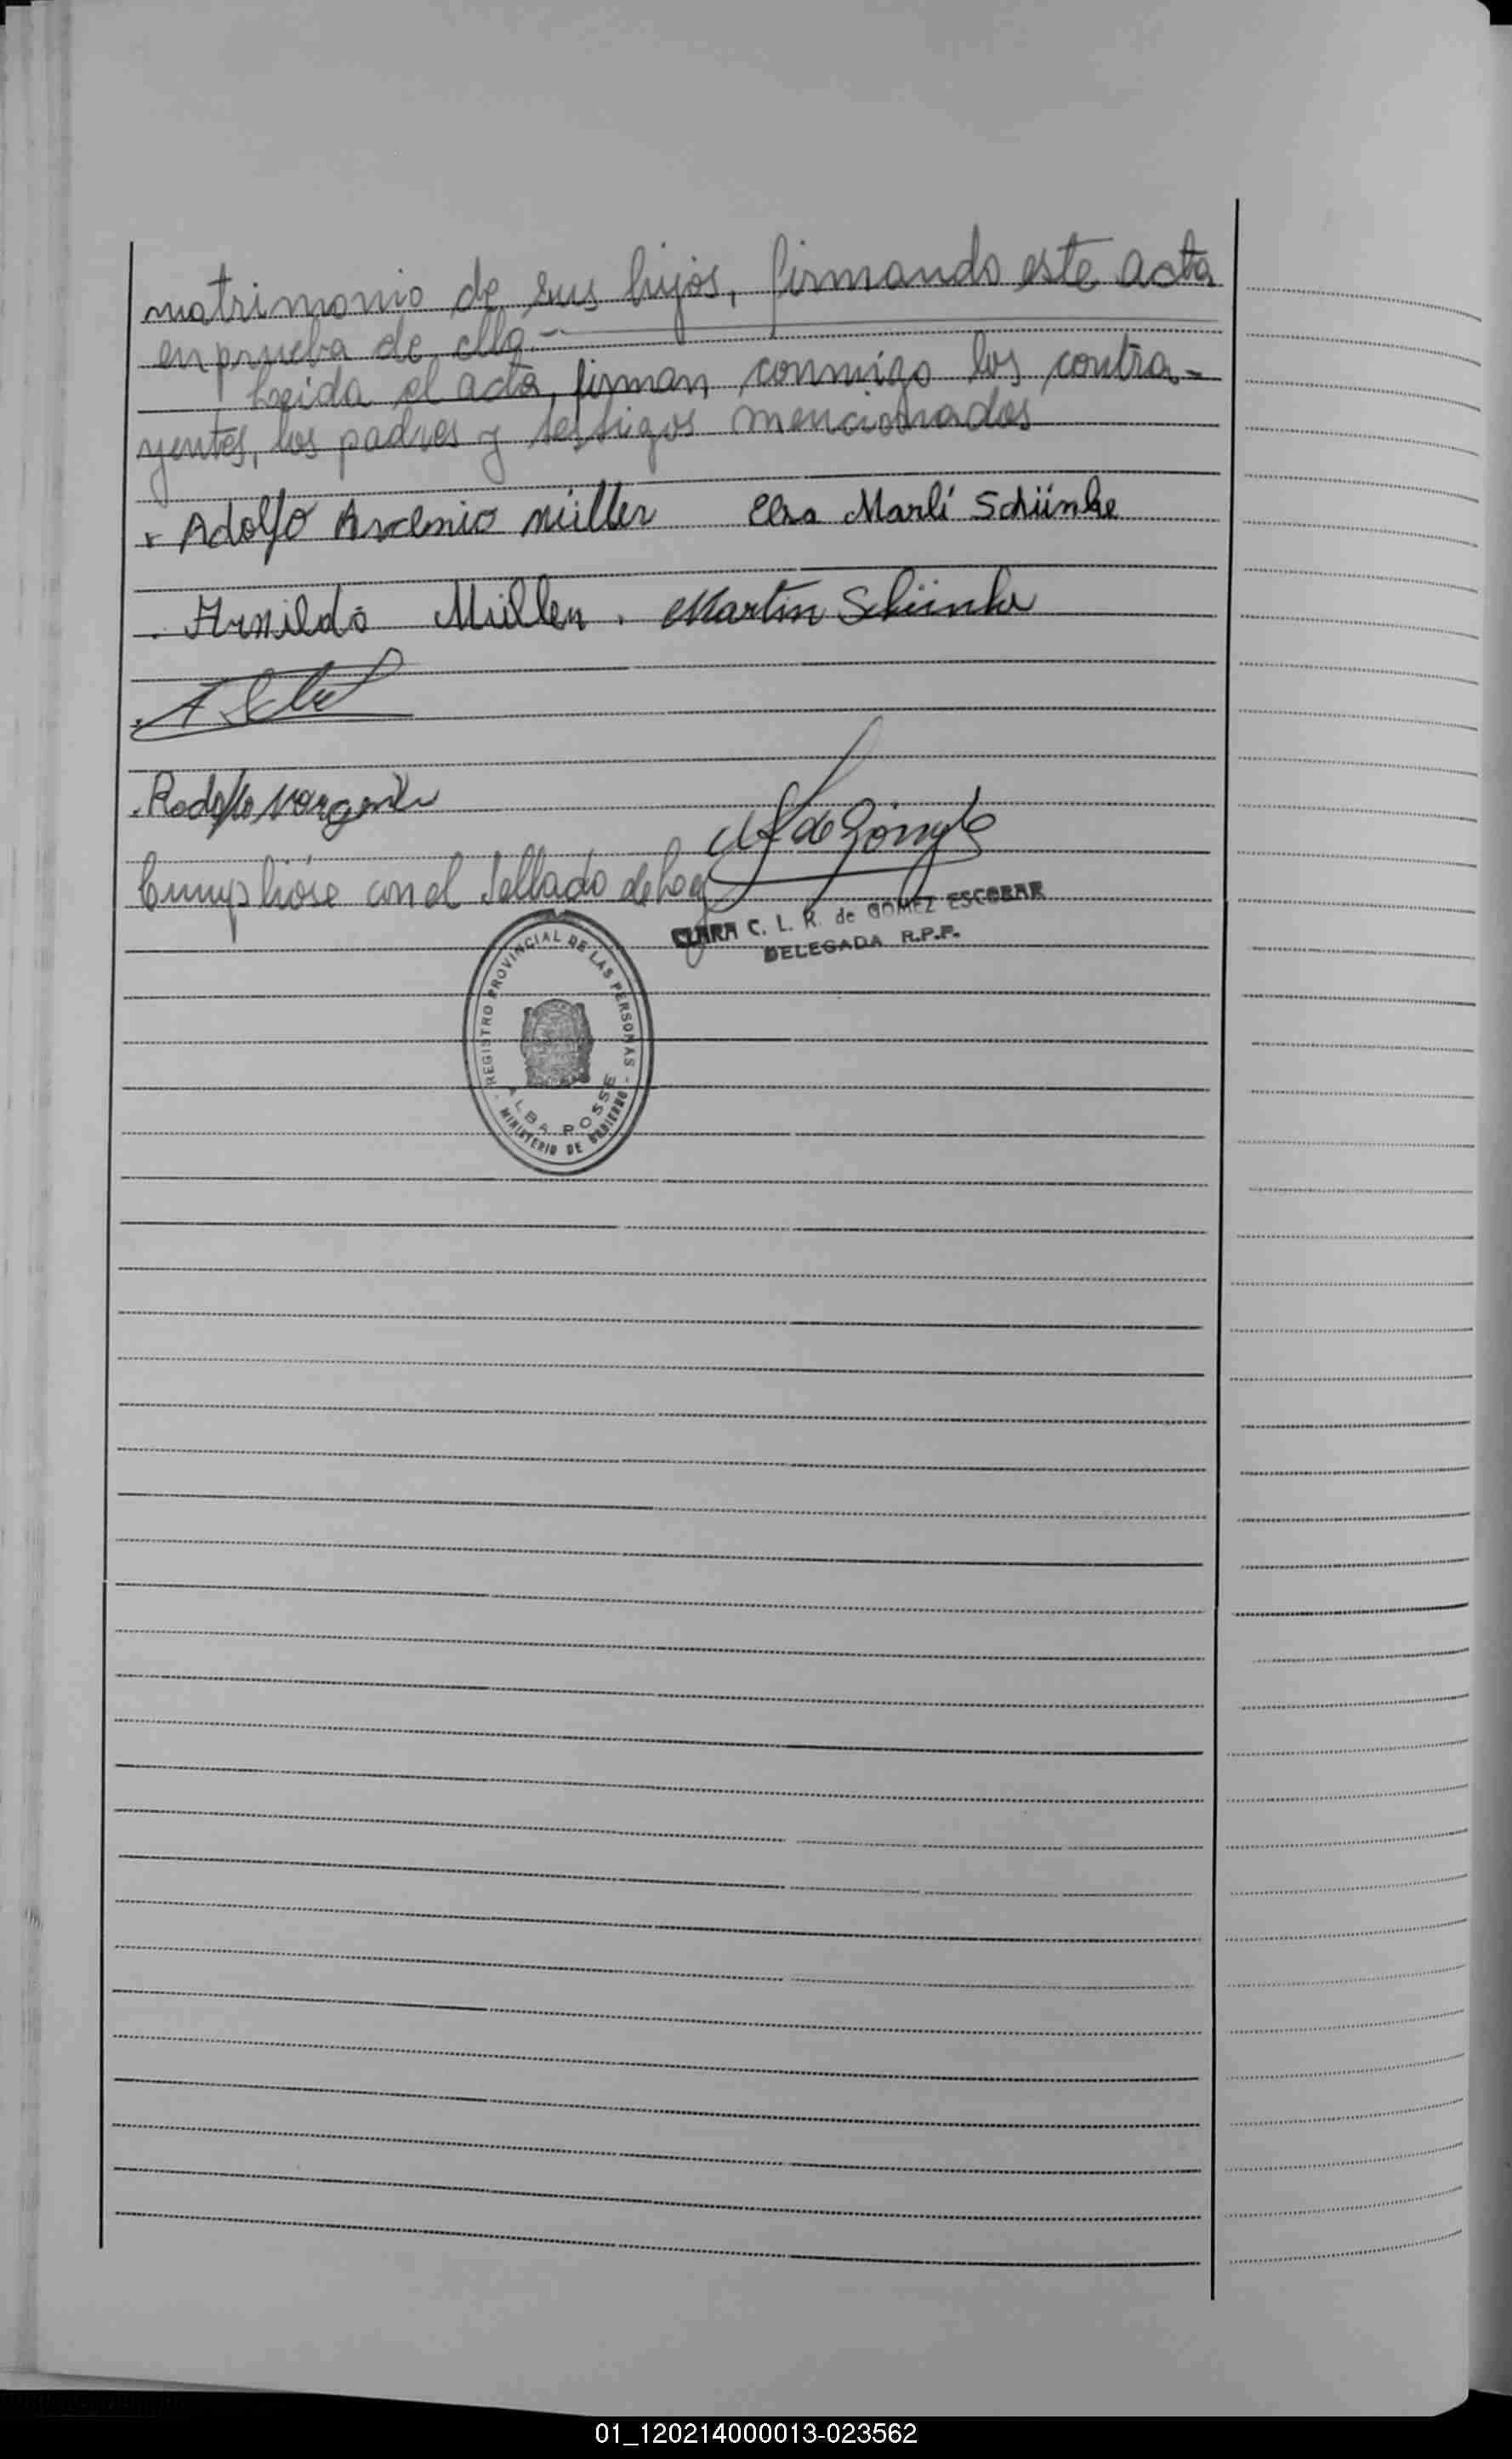 matrimonio de sus hijos, firmando este acta
en prueba de ello.-
Leida el acta, firman conmigo los contra-
yentes, los padres y testigos mencionados
Adolfo Arsenio Müller Elsa Marlí Schünke
Arnildo Müller. Martin Schünke
Rodolfo
Cumplióse con el Sellado de Ley
CLARA C. L. R. de GOMEZ ESCOBAR
DELEGADA R.P.P.
REGISTRO PROVINCIAL DE LAS PERSONAS
ALBA POSSE
MINISTERIO DE GOBIERNO
01_120214000013-023562